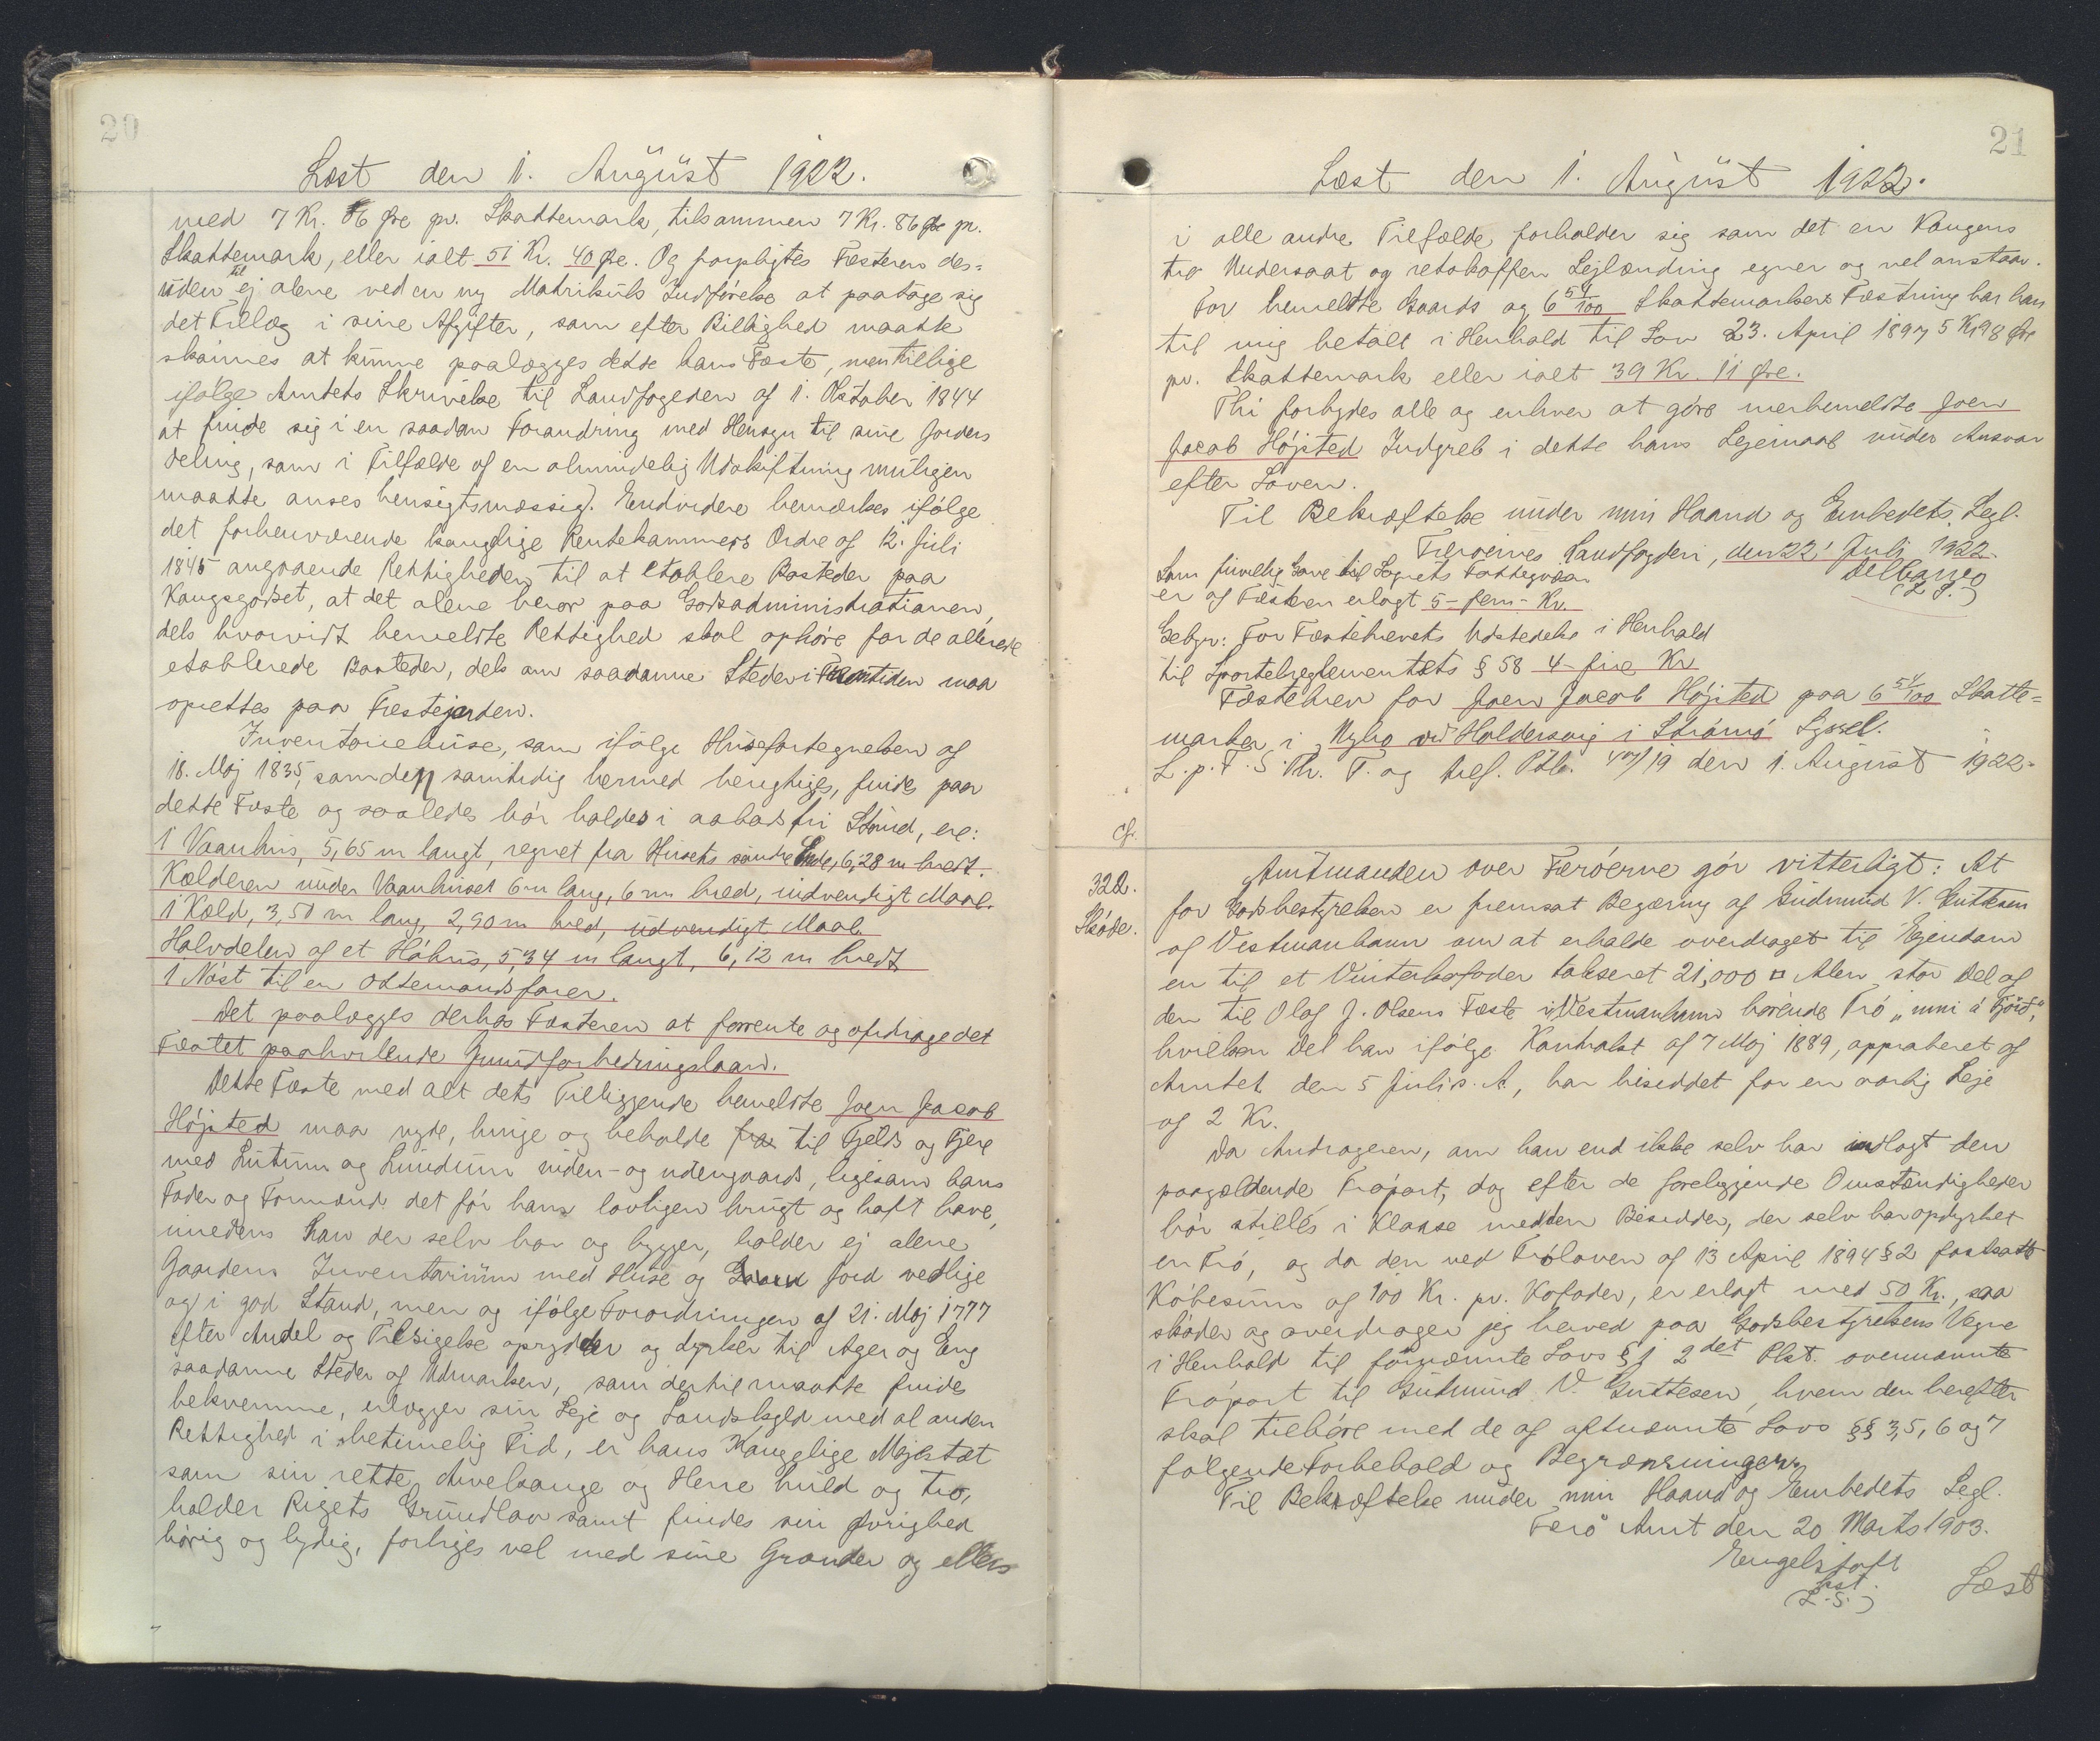 20
Læst den 1. August 1922.
med 7 Kr. 86 Øre pr. Skattemark, tilsammen 7 Kr. 86 Øre pr.
Skattemark, eller ialt 51 Kr. 40 Øre. Og forpligtes Fæsteren des-
uden til ej alene ved en ny Matrikuls Indførelse at paatage sig
det Tillæg i sine Afgifter, som efter Billighed maatte
skønnes at kunne paalægges dette hans Fæste, men tillige
ifølge Amtets Skrivelse til Landfogeden af 1. Oktober 1844
at finde sig i en saadan Forandring med Hensyn til sine Jorders
Deling, som i Tilfælde af en almindelig Udskiftning muligen
maatte anses hensigtsmæssig. Endvidere bemærkes ifølge
det forhenværende kongelige Rentekammers Ordre af 12. Juli
1845 angaaende Rettigheden til at etablere Bosteder paa
Kongsgodset, at det alene beror paa Godsadministrationen,
dels hvorvidt bemeldte Rettighed skal ophøre for de allerede
etablerede Bosteder, dels om saadanne Steder i Fremtiden maa
oprettes paa Fæstejorden.
Inventariehuse, som ifølge Husefortegnelsen af
18. Maj 1835, som den samtidig hermed berigtiges, findes paa
dette Fæste og saaledes bør holdes i aabodsfri Stand, ere:
1 Vaanhus, 5,65 m langt, regnet fra Husets søndre Ende, 6,28 m bredt.
Kælderen under Vaanhuset 6 m lang, 6 m bred, indvendigt Maal.
1 Kold, 3,50 m lang, 2,90 m bred, udvendigt Maal.
Halvdelen af et Høhus, 5,34 m langt, 6,12 m bredt
1 Nøst til en Ottemandsfarer.
Det paalægges derhos Fæsteren at forrente og afdrage det
Fæstet paahvilende Grundforbedringslaan.
Dette Fæste med alt dets Tilliggende bemeldte Joen Jacob
Højsted maa nyde, bruge og beholde fra til Fjeld og Fjere
med Lutum og Lundum inden- og udengaards, ligesom hans
Fader og Formænd det før ham lovligen brugt og haft have,
imedens han der selv bor og bygger, holder ej alene
Gaardens Inventarium med Huse og Jord vedlige
og i god Stand, men og ifølge Forordningen af 21. Maj 1777
efter Andel og Tilsigelse oprydder og dyrker til Ager og Eng
saadanne Steder af Udmarken, som dertil maatte findes
bekvemme, erlægger sin Leje og Landskyld med al anden
Rettighed i betimelig Tid, er hans Kongelige Majestæt
som sin rette Arvekonge og Herre huld og tro,
holder Rigets Grundlov samt findes sin Øvrighed
hørig og lydig, forliges vel med sine Grander og ellers
21
Læst den 1. August 1922.
i alle andre Tilfælde forholder sig som det en Kongens
tro Undersaat og retskaffen Lejlænding egner og vel anstaar.
For bemeldte Gaards og 6 54/100 Skattemarkers Fæstning har han
til mig betalt i Henhold til Lov 23. April 1897 5 Kr 98 Øre
pr. Skattemark eller ialt 39 Kr. 11 Øre.
Thi forbydes alle og enhver at gøre merbemeldte Joen
Jacob Højsted Indgreb i dette hans Lejemaal under Ansvar
efter Loven.
Til Bekræftelse under min Haand og Embedets Segl.
Færøernes Landfogderi, den 22' Juli 1922.
Delbanco
(L.S.)
Som frivillig Gave til Sognets Fattigvæsen
er af Fæsteren erlagt 5 - fem - Kr.
Gebyr: For Fæstebrevets Udstedelse i Henhold
til Sportelreglementets § 58 4 - fire Kr
Fæstebrev for Joen Jacob Højsted paa 6 54/100 Skatte-
marker i Nybo ved Haldersvig i Strømø Syssel.
L. p. F. S. Th. T. og tref. Ptb. 19 den 1. August 1922.
Cfr.
322.
Skøde.
Amtmanden over Færøerne gør vitterligt: At
for Godsbestyrelsen er fremsat Begæring af Gudmund V. Guttesen
af Vestmanhavn om at erholde overdraget til Ejendom
en til et Vinterkofoder takseret 21,000 □ Alen stor Del af
den til Olaf J. Olsens Fæste i Vestmanhavn hørende Trø "inni á Fjørð",
hvilken Del han ifølge Kontrakt af 7 Maj 1889, approberet af
Amtet den 5 Juli s. A., har besiddet for en aarlig Leje
af 2 Kr.
Da Andrageren, om han end ikke selv har indlagt den
paagældende Trøpart, dog efter de foreliggende Omstændigheder
bør stilles i Klasse med den Besidder, der selv har opdyrket
en Trø, og da den ved Trøloven af 13 April 1894 § 2 fastsatte
Købesum af 100 Kr. pr. Kofoder, er erlagt med 50 Kr., saa
skøder og overdrager jeg herved paa Godsbestyrelsens Vegne
i Henhold til fornævnte Lovs § 1 2det Pkt. ovennævnte
Trøpart til Gudmund V. Guttesen, hvem den herefter
skal tilhøre med de af oftnævnte Lovs §§ 3, 5, 6 og 7
følgende Forbehold og Begrænsninger.
Til Bekræftelse under min Haand og Embedets Segl.
Færø Amt den 20 Marts 1903.
Engelstoft
kst.
(L.S.)
Læst